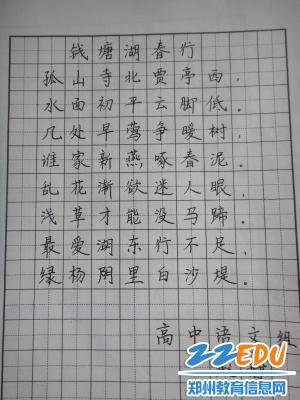 钱塘湖春行
孤山寺北贾亭西，
水面初平云脚低。
几处早莺争暖树，
谁家新燕啄春泥。
乱花渐欲迷人眼，
浅草才能没马蹄。
最爱湖东行不足，
绿杨阴里白沙堤。
高中语文组
ZZEDU
郑州教育信息网